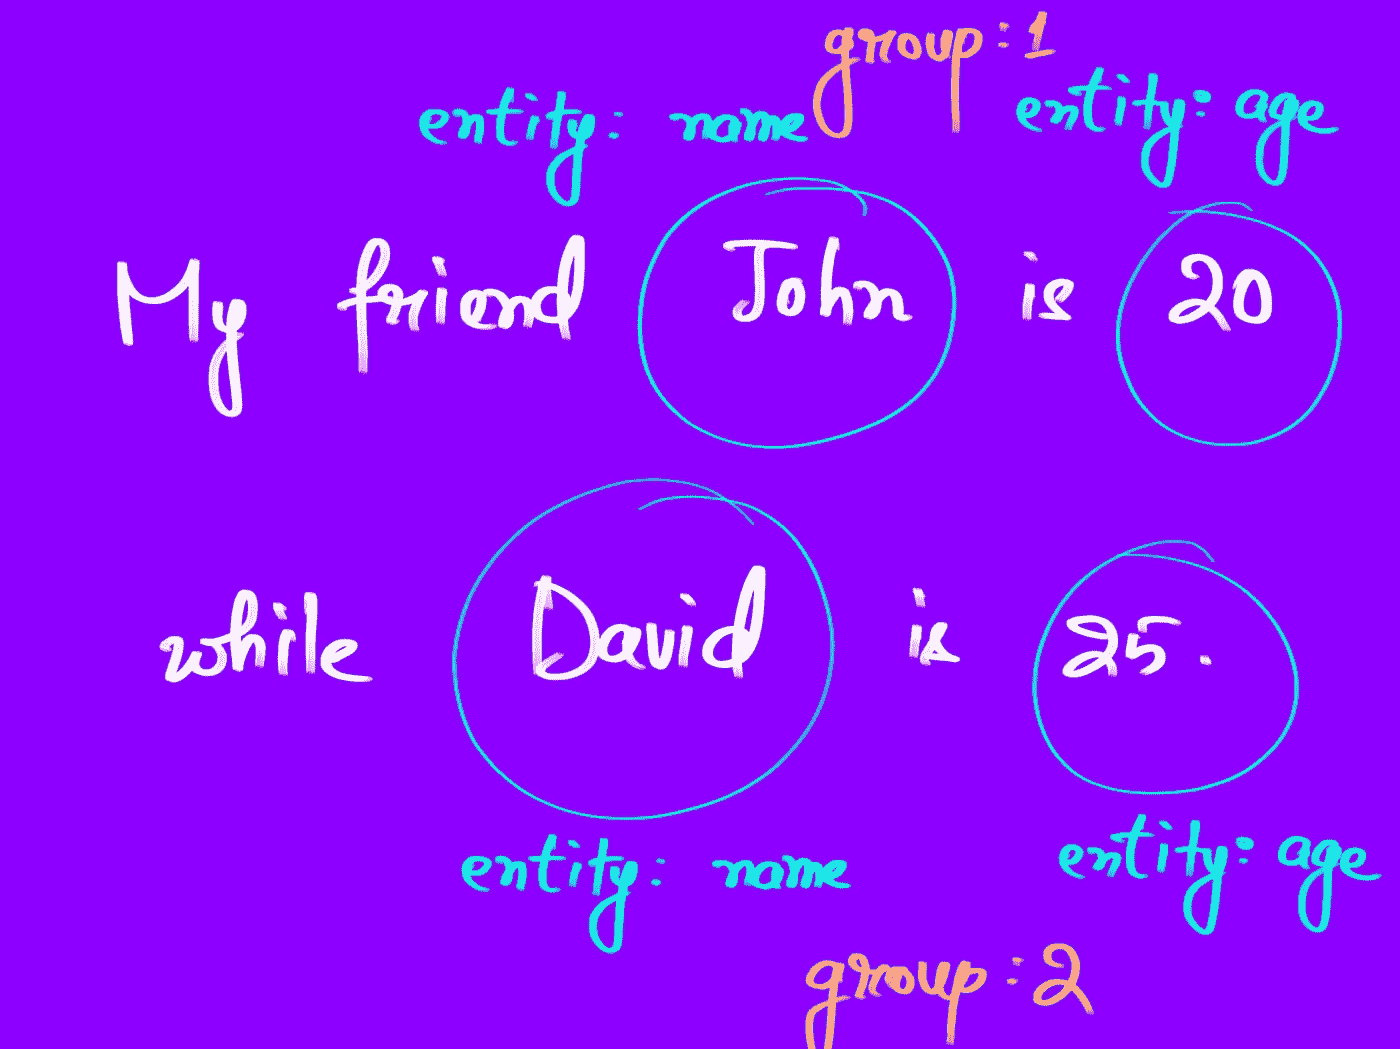 group:1
entity: name entity: age
My friend John is 20
while David is 25.
entity: name entity: age
group:2